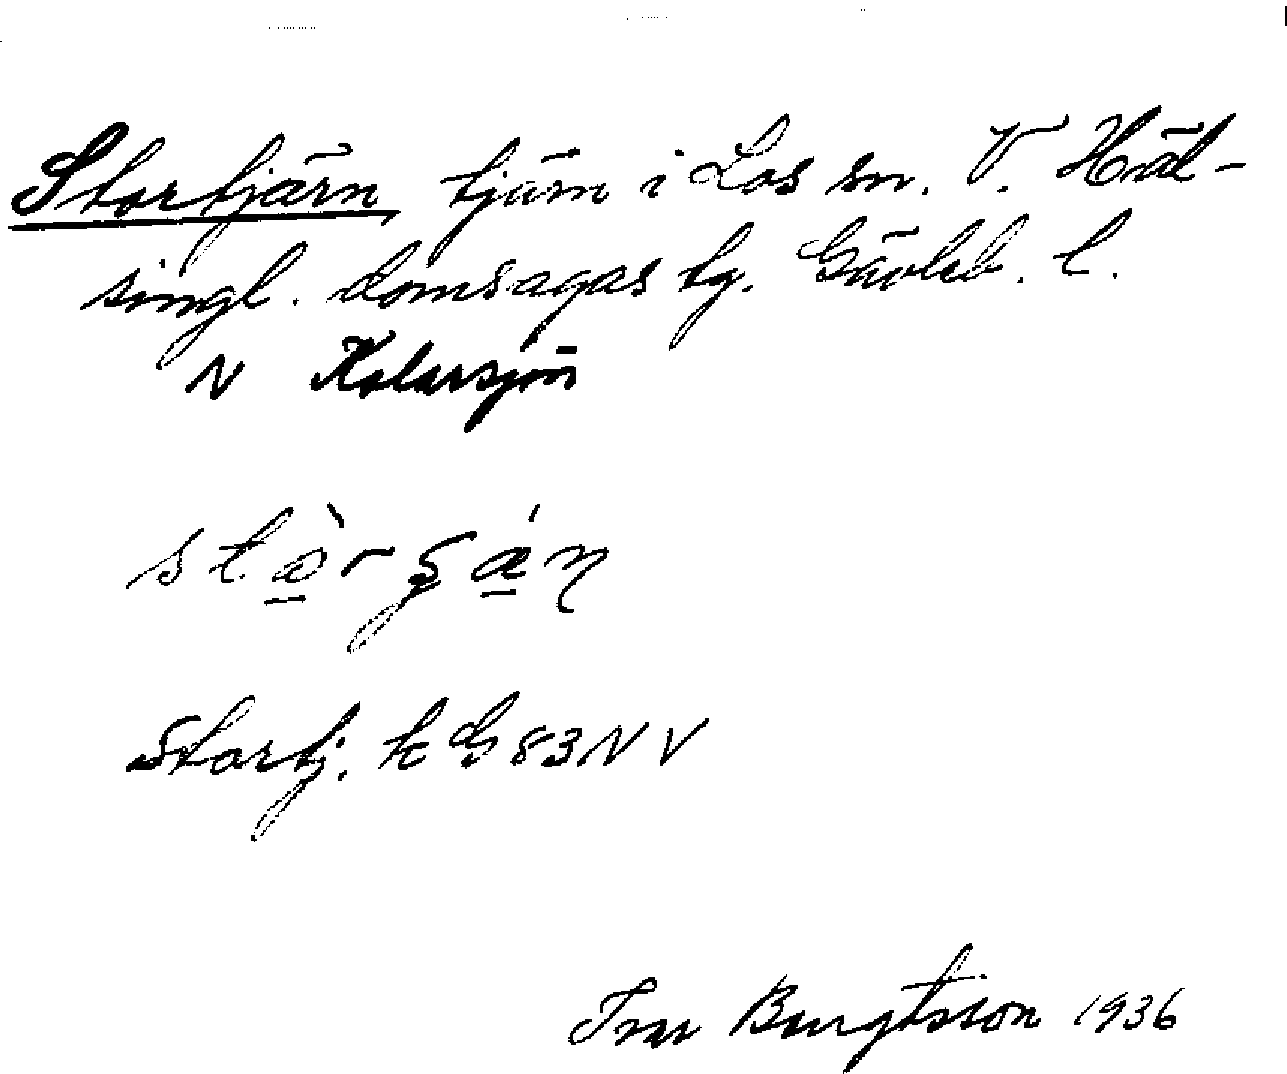 Stortjärn, tjärn i Los sn. V. Häl-
singl. domsagas tg. Gävleb. l.
N Kolarsjön
Stortj. k G 83 NV
Ivar Bengtsson 1936